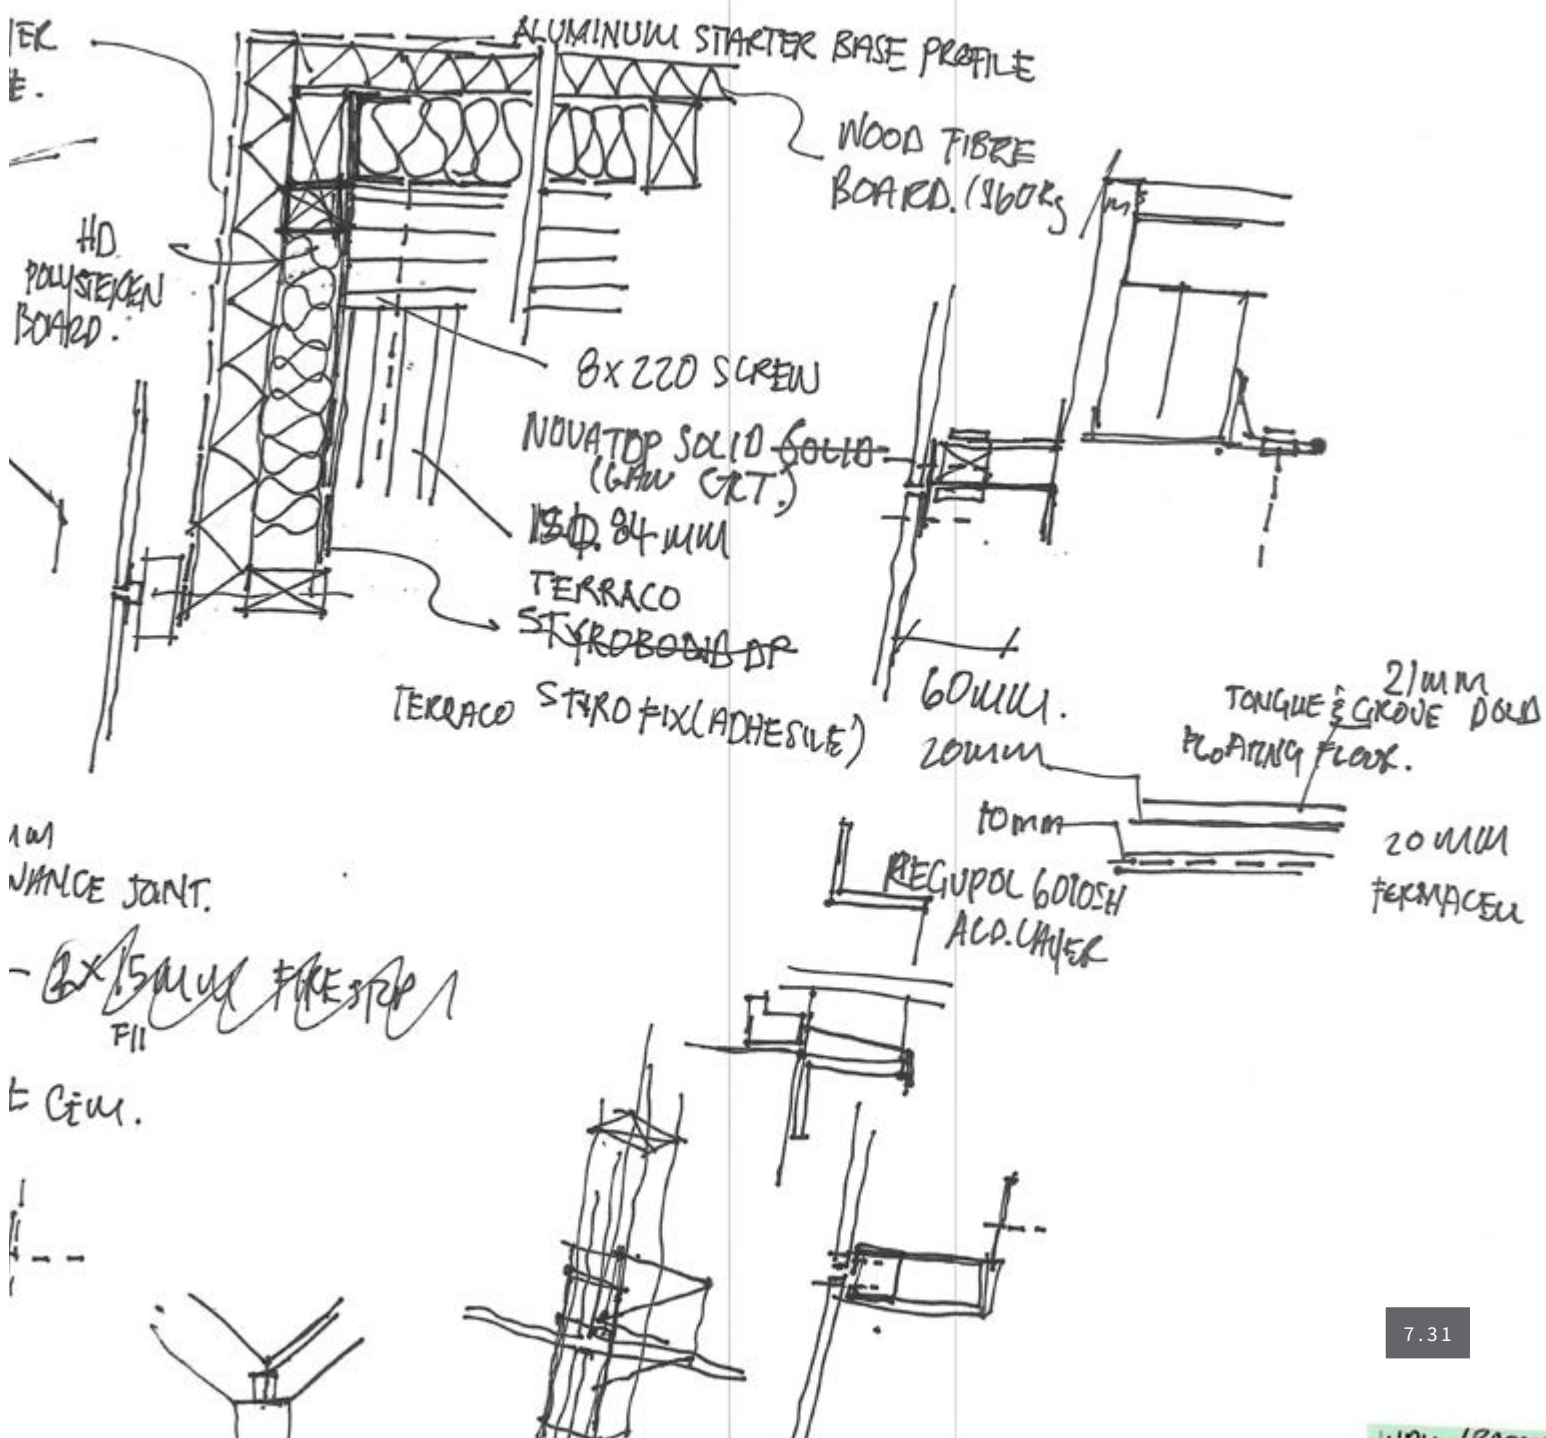 ALUMINUM STARTER BASE PROFILE
WOOD FIBRE
BOARD. (160Kg
HD
BOARD.
8x220 SCREW
NOVATOP SOLID SOLID
84 MM
TERRACO
STYROBOND DP
TERRACO STYROFIX (ADHESIVE)
60MM.
20mm
10mm
21mm
TONGUE & GROVE
FLOATING FLOOR.
20MM
FERMACELL
REGUPOL 6010SH
JOINT.
15MM FIRESTRIP
7.31